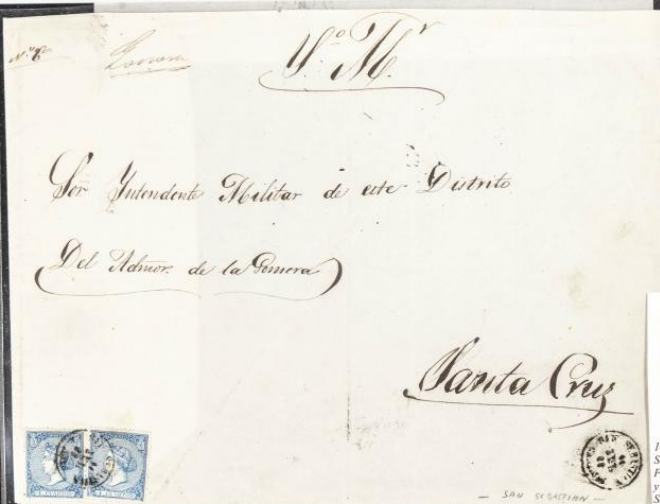 Nº 6
Gomera
Sº Mr.
Sor Yntendente Militar de este Distrito
(Del Admor. de la Gomera)
Santa Cruz
SAN SEBASTIAN
— SAN SEBASTIAN —